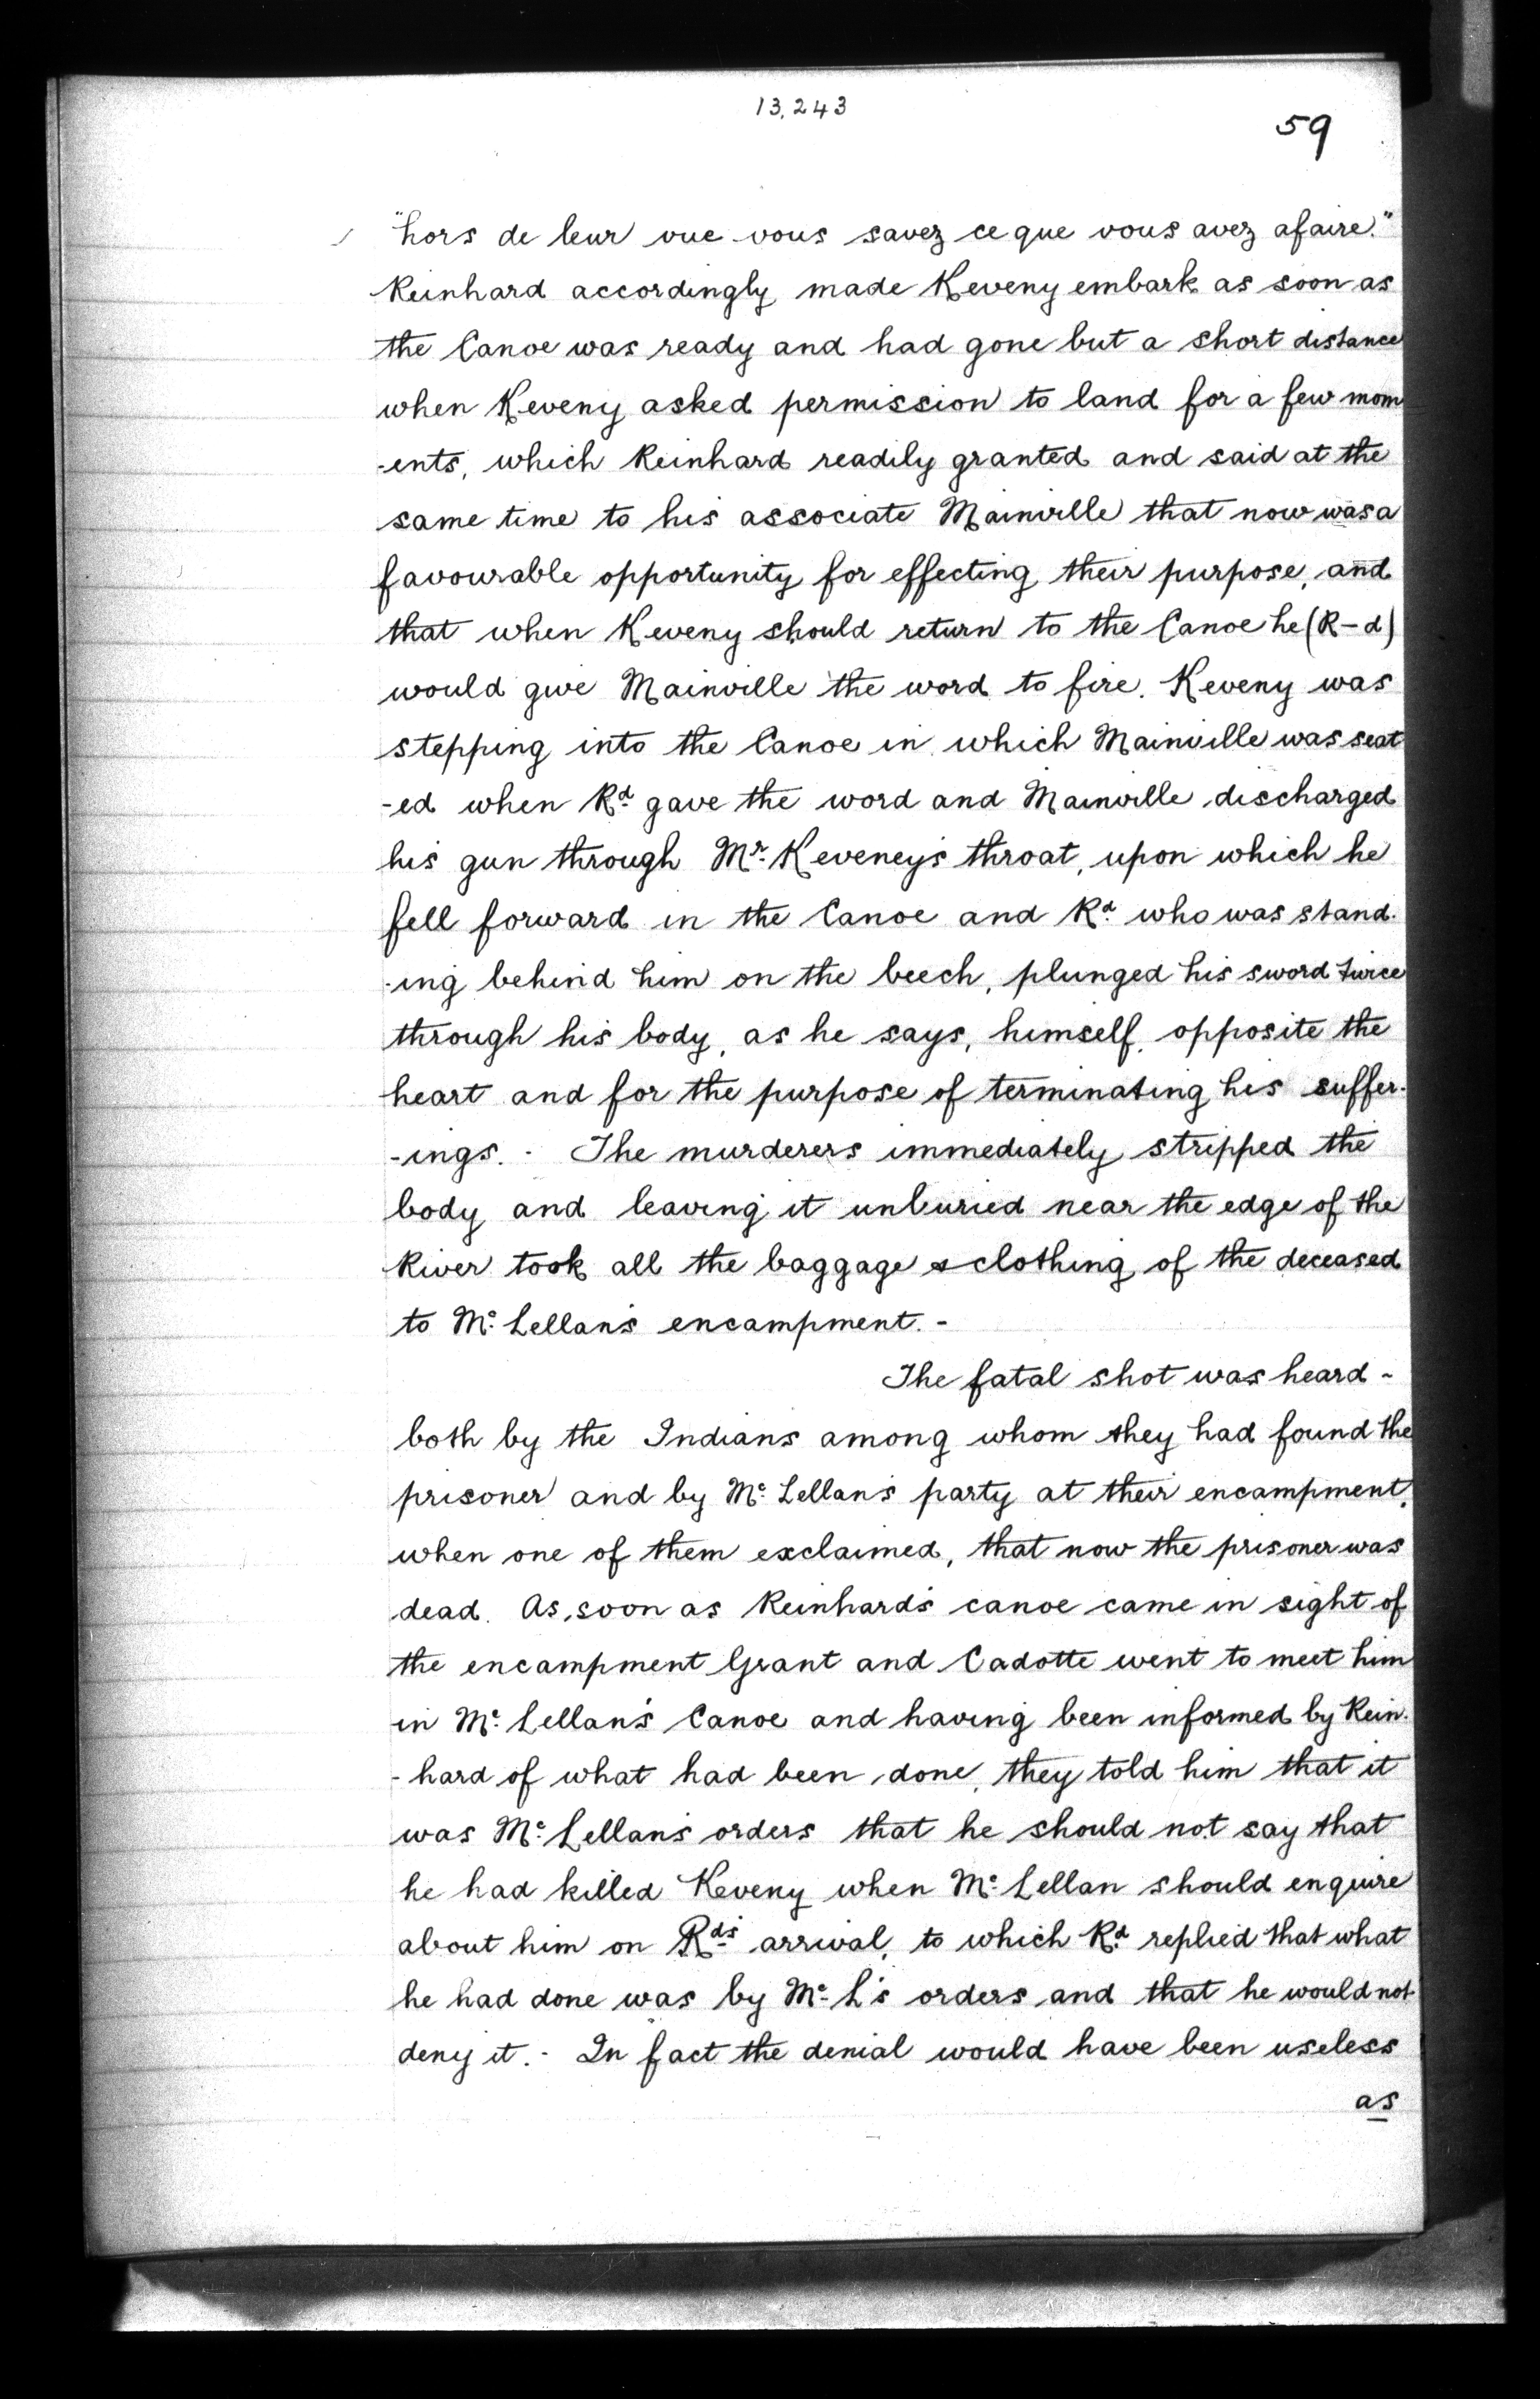 13,243
59
"hors de leur vue vous savez ce que vous avez afaire."
Reinhard accordingly made Keveny embark as soon as
the Canoe was ready and had gone but a short distance
when Keveny asked permission to land for a few mom
-ents, which Reinhard readily granted and said at the
same time to his associate Mainville that now was a
favourable opportunity for effecting their purpose, and
that when Keveny should return to the Canoe he (R-d)
would give Mainville the word to fire. Keveny was
stepping into the Canoe in which Mainville was seat
-ed when Rd. gave the word and Mainville discharged
his gun through Mr. Keveney's throat, upon which he
fell forward in the Canoe and Rd. who was stand-
-ing behind him on the beech, plunged his sword twice
through his body, as he says, himself, opposite the
heart and for the purpose of terminating his suffer-
-ings. - The murderers immediately stripped the
body and leaving it unburied near the edge of the
River took all the baggage & clothing of the deceased
to Mc. Lellan's encampment. -
The fatal shot was heard -
both by the Indians among whom they had found the
prisoner and by Mc. Lellan's party at their encampment,
when one of them exclaimed, that now the prisoner was
dead. As soon as Reinhard's canoe came in sight of
the encampment Grant and Cadotte went to meet him
in Mc. Lellan's Canoe and having been informed by Rein-
-hard of what had been done, they told him that it
was Mc. Lellan's orders that he should not say that
he had killed Keveny when Mc. Lellan should enquire
about him on Rd's arrival, to which Rd. replied that what
he had done was by Mc. L's orders and that he would not
deny it. - In fact the denial would have been useless
as